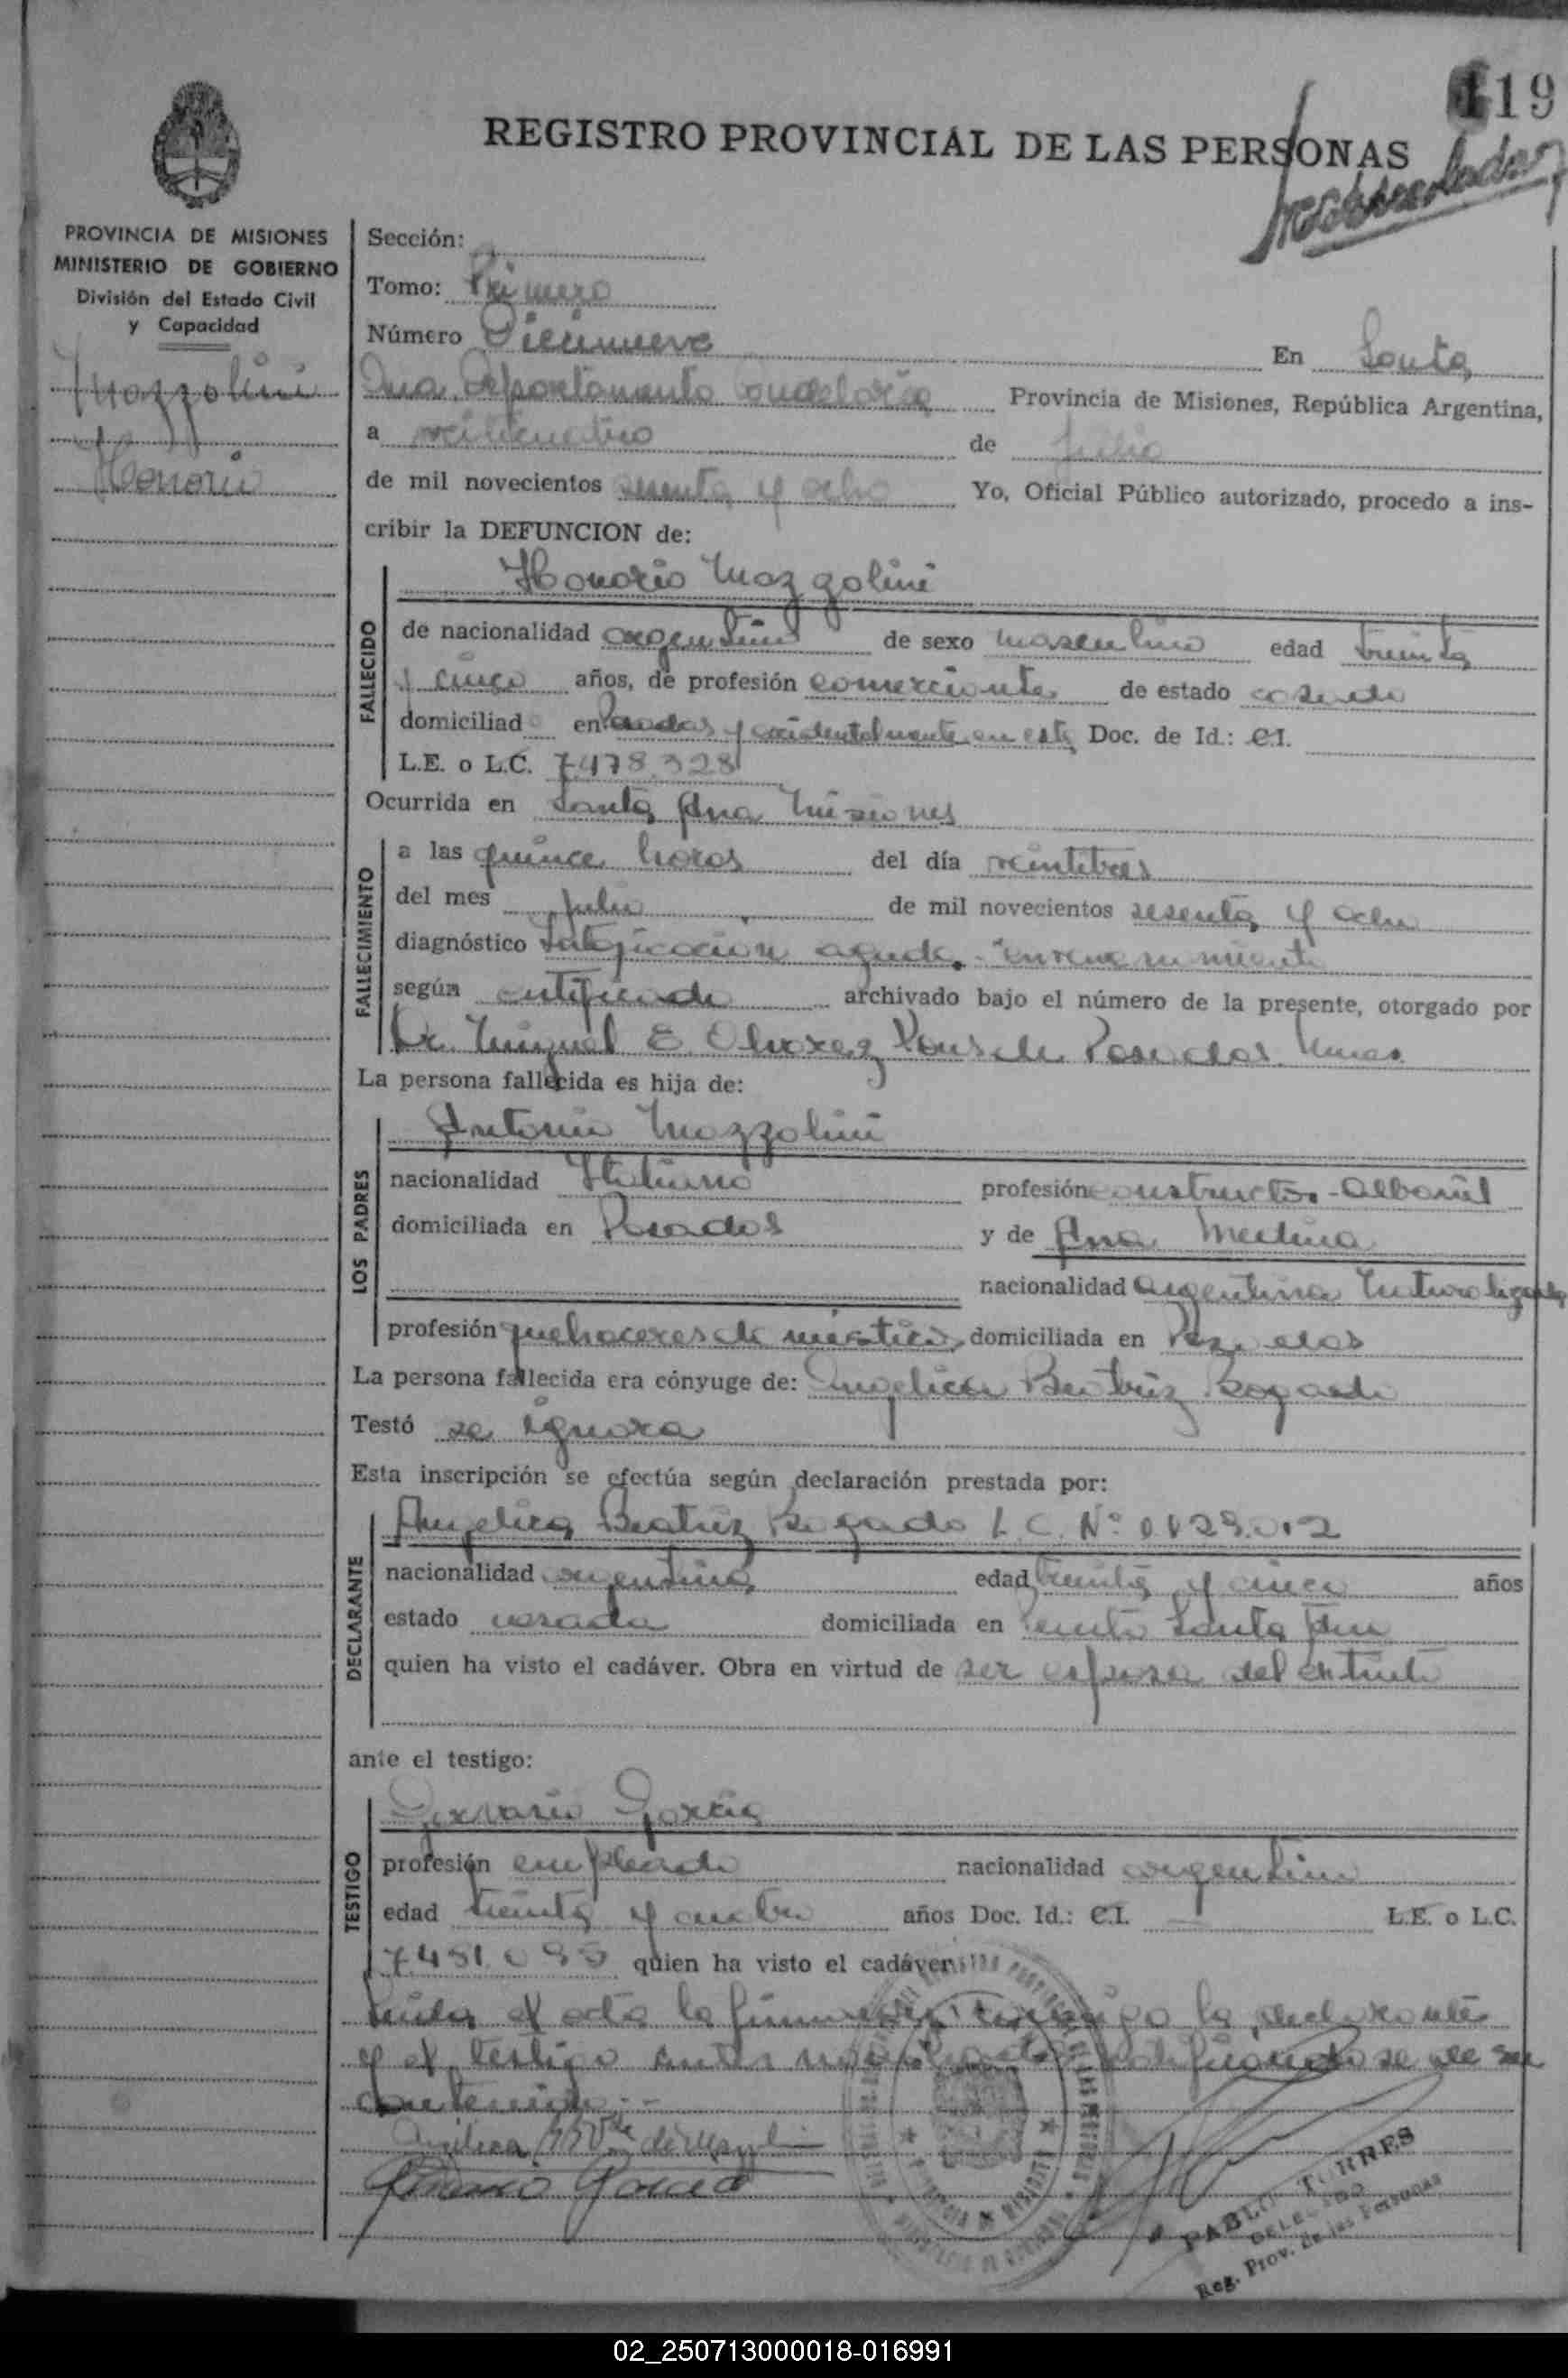 119
REGISTRO PROVINCIAL DE LAS PERSONAS
PROVINCIA DE MISIONES
MINISTERIO DE GOBIERNO
División del Estado Civil
y Capacidad
Mazzolini
Honorio
Sección:
Tomo: Primero
Número Diecinueve En Santa
Ana, Departamento Candelaria Provincia de Misiones, República Argentina,
a veinticuatro de Julio
de mil novecientos sesenta y ocho Yo, Oficial Público autorizado, procedo a ins-
cribir la DEFUNCION de:
Honorio Mazzolini
FALLECIDO
de nacionalidad argentino de sexo masculino edad treinta
y cinco años, de profesión comerciante de estado casado
domiciliado en Posadas y accidentalmente en esta Doc. de Id.: C.I.
L.E. o L.C. 7.478.328
Ocurrida en Santa Ana Misiones
FALLECIMIENTO
a las quince horas del día veintitres
del mes Julio de mil novecientos sesenta y ocho
diagnóstico Intoxicación aguda. envenenamiento
según certificado archivado bajo el número de la presente, otorgado por
Dr. Miguel E. Alvarez Pons de Posadas Mnes
La persona fallecida es hija de:
LOS PADRES
Antonio Mazzolini
nacionalidad Italiano profesión constructor-Albañil
domiciliada en Posadas y de Ana Medina
nacionalidad argentina Naturalizada
profesión quehaceres domésticos domiciliada en Posadas
La persona fallecida era cónyuge de: Angélica Beatriz Bogado
Testó se ignora
Esta inscripción se efectúa según declaración prestada por:
DECLARANTE
Angelica Beatriz Bogado L.C. Nº
nacionalidad argentina edad treinta y cinco años
estado casada domiciliada en Santa Ana
quien ha visto el cadáver. Obra en virtud de ser esposa del extinto
ante el testigo:
TESTIGO
Gervasio García
profesión empleado nacionalidad argentino
edad treinta y cuatro años Doc. Id.: C.I. L.E. o L.C.
quien ha visto el cadáver
Leida el acta la firman conmigo la declarante
y el testigo de su
contenido.-
PABLO TORRES
DELEGADO
Reg. Prov. de las Personas
02_250713000018-016991